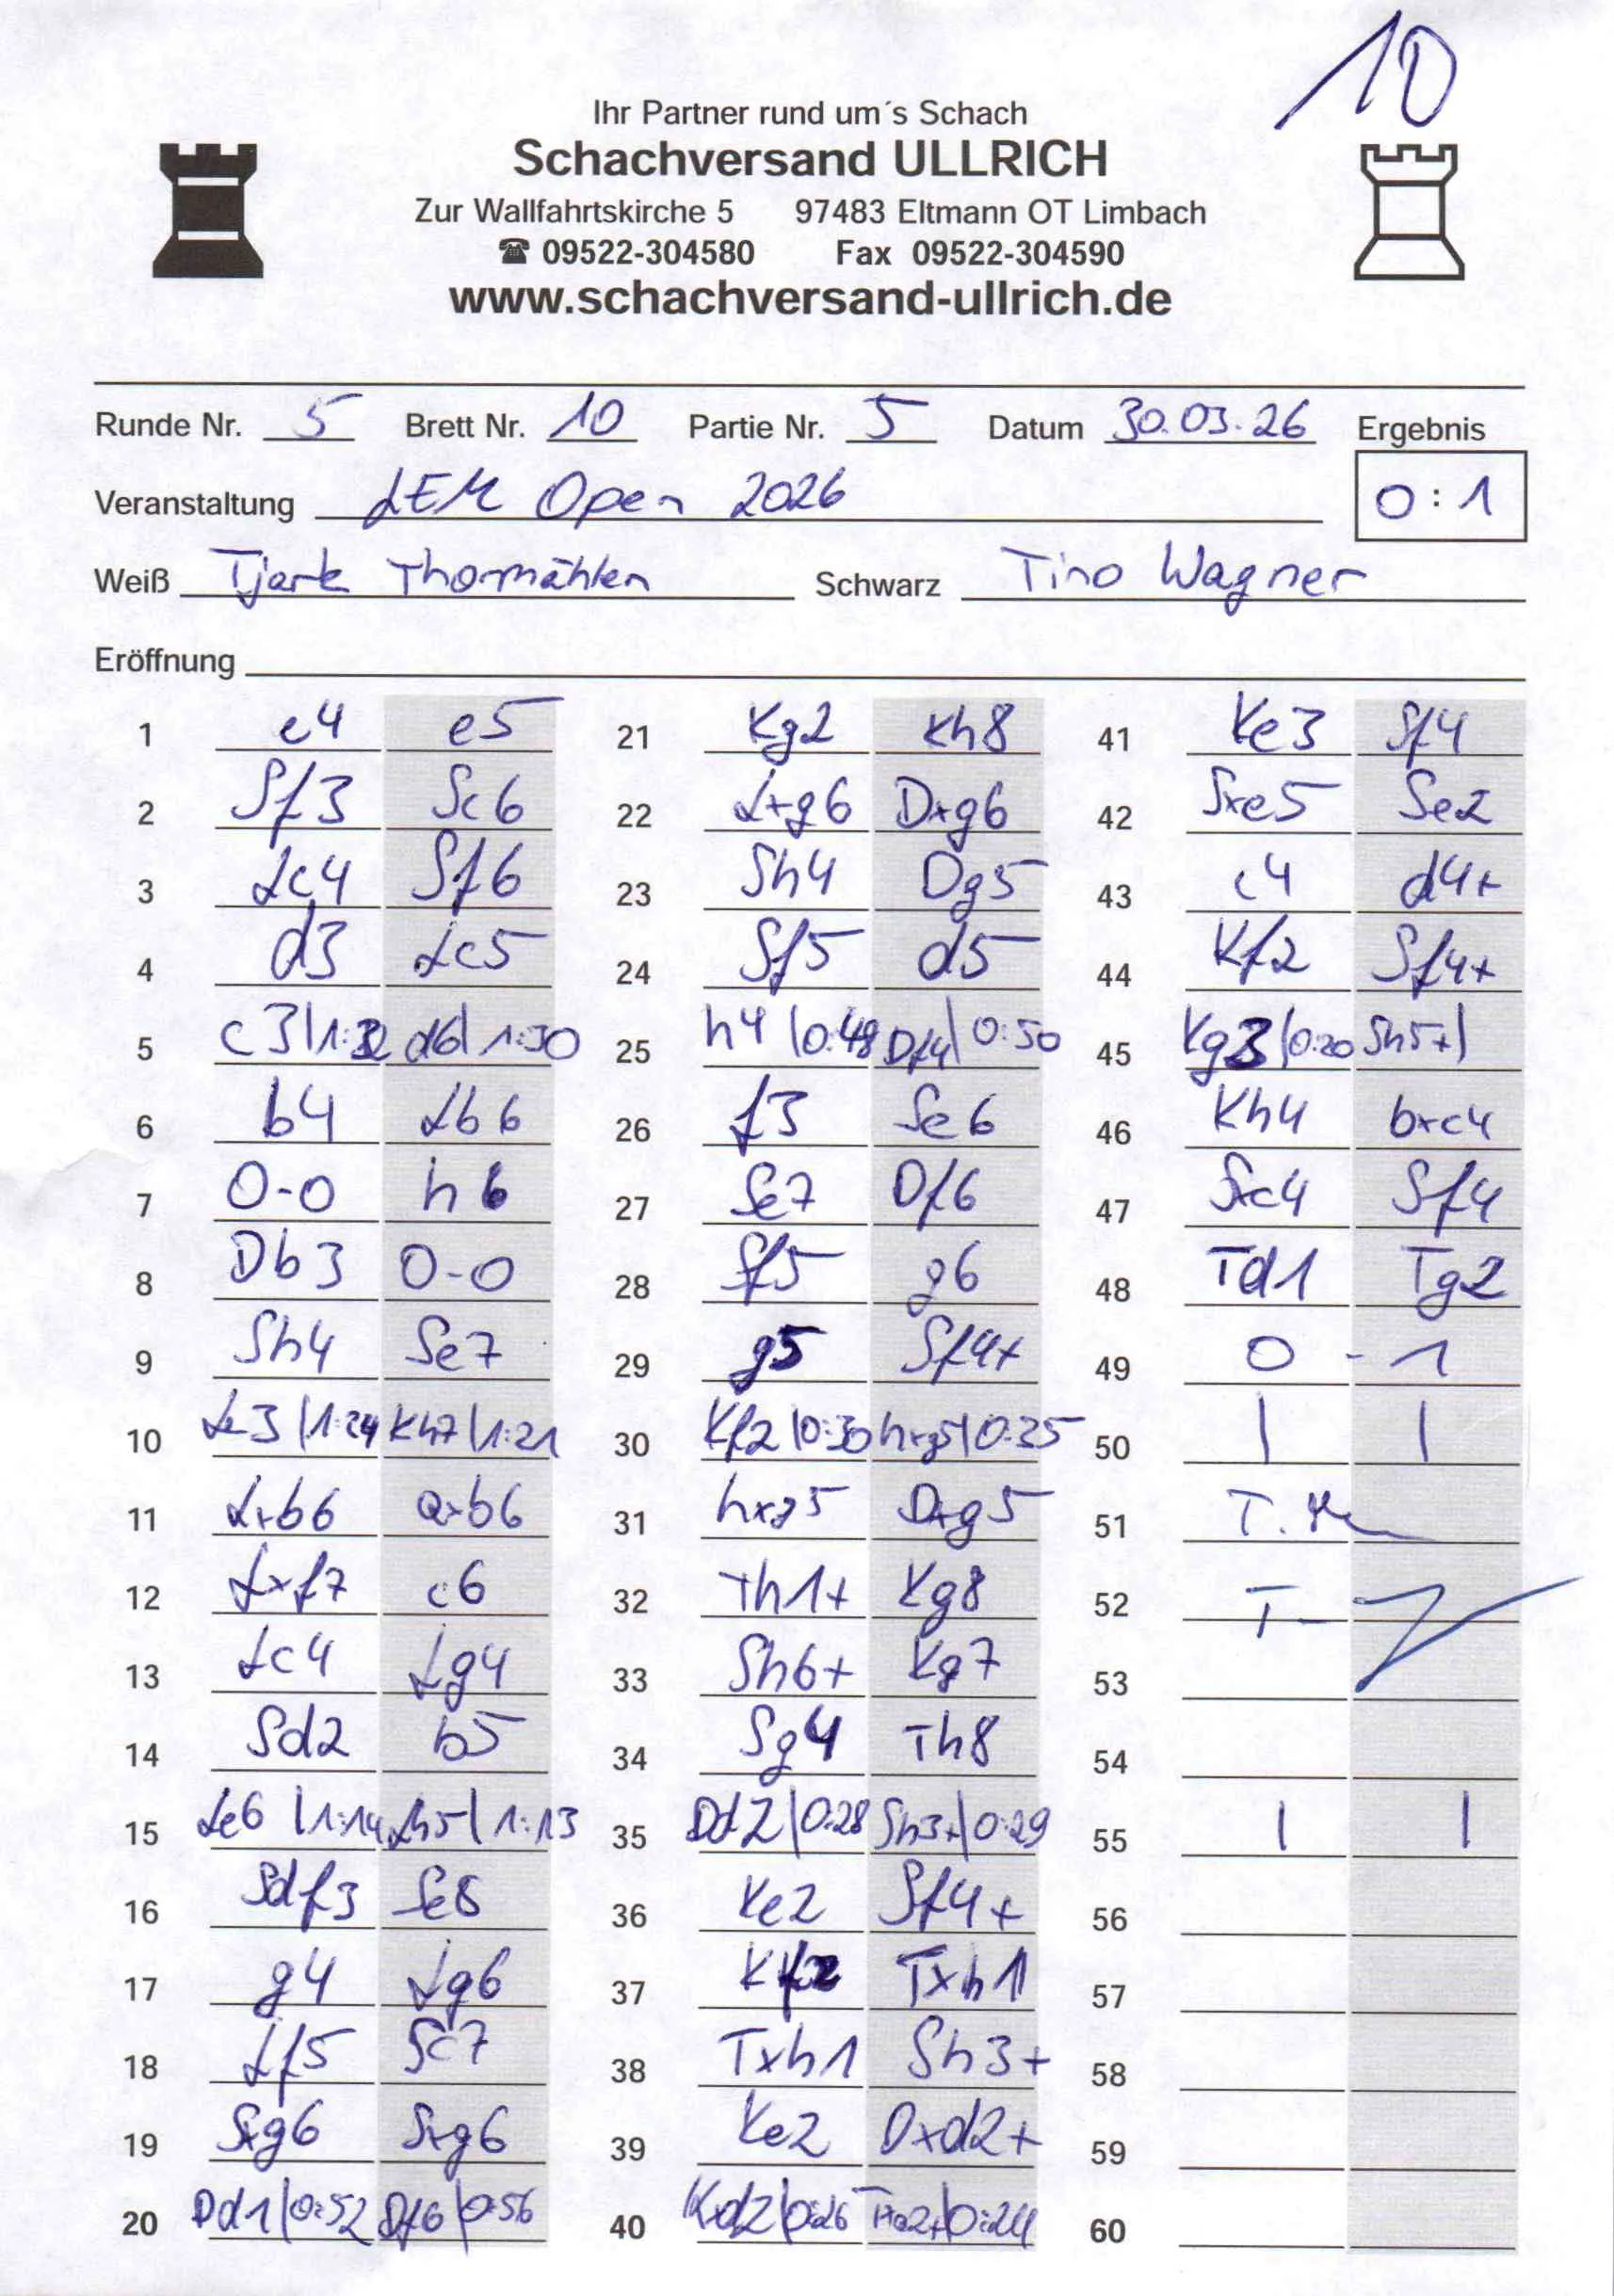 10
Ihr Partner rund um´s Schach
Schachversand ULLRICH
Zur Wallfahrtskirche 5 97483 Eltmann OT Limbach
☎ 09522-304580 Fax 09522-304590
www.schachversand-ullrich.de
Runde Nr. 5 Brett Nr. 10 Partie Nr. 5 Datum 30.03.26 Ergebnis
Veranstaltung LEM Open 2026 0:1
Weiß Tjark Thormählen Schwarz Tino Wagner
Eröffnung
1 e4 e5 21 Kg2 Kh8 41 Ke3 Sf4
2 Sf3 Sc6 22 Lxg6 Dxg6 42 Sxe5 Se2
3 Lc4 Sf6 23 Sh4 Dg5 43 c4 d4+
4 d3 Lc5 24 Sf5 d5 44 Kf2 Sf4+
5 c3|1:32 d6|1:30 25 h4|0:48 Df4|0:50 45 Kg3|0:20 Sh5+|
6 b4 Lb6 26 f3 Se6 46 Kh4 bxc4
7 0-0 h6 27 Se7 Df6 47 Sxc4 Sf4
8 Db3 0-0 28 Sf5 g6 48 Td1 Tg2
9 Sh4 Se7 29 g5 Sf4+ 49 0 - 1
10 Le3|1:24 Kh7|1:21 30 Kf2|0:30 hxg5|0:35 50 | |
11 Lxb6 axb6 31 hxg5 Dxg5 51 T.
12 Lxf7 c6 32 Th1+ Kg8 52 T-
13 Lc4 Lg4 33 Sh6+ Kg7 53
14 Sd2 b5 34 Sg4 Th8 54
15 Le6|1:14 Lh5|1:13 35 Dd2|0:28 Sh3+|0:29 55 | |
16 Sdf3 Se8 36 Ke2 Sf4+ 56
17 g4 Lg6 37 Kf2 Txh1 57
18 Lf5 Sc7 38 Txh1 Sh3+ 58
19 Sxg6 Sxg6 39 Ke2 Dxd2+ 59
20 Dd1|0:52 Df6|0:56 40 Kxd2|0:26 Txa2+|0:24 60